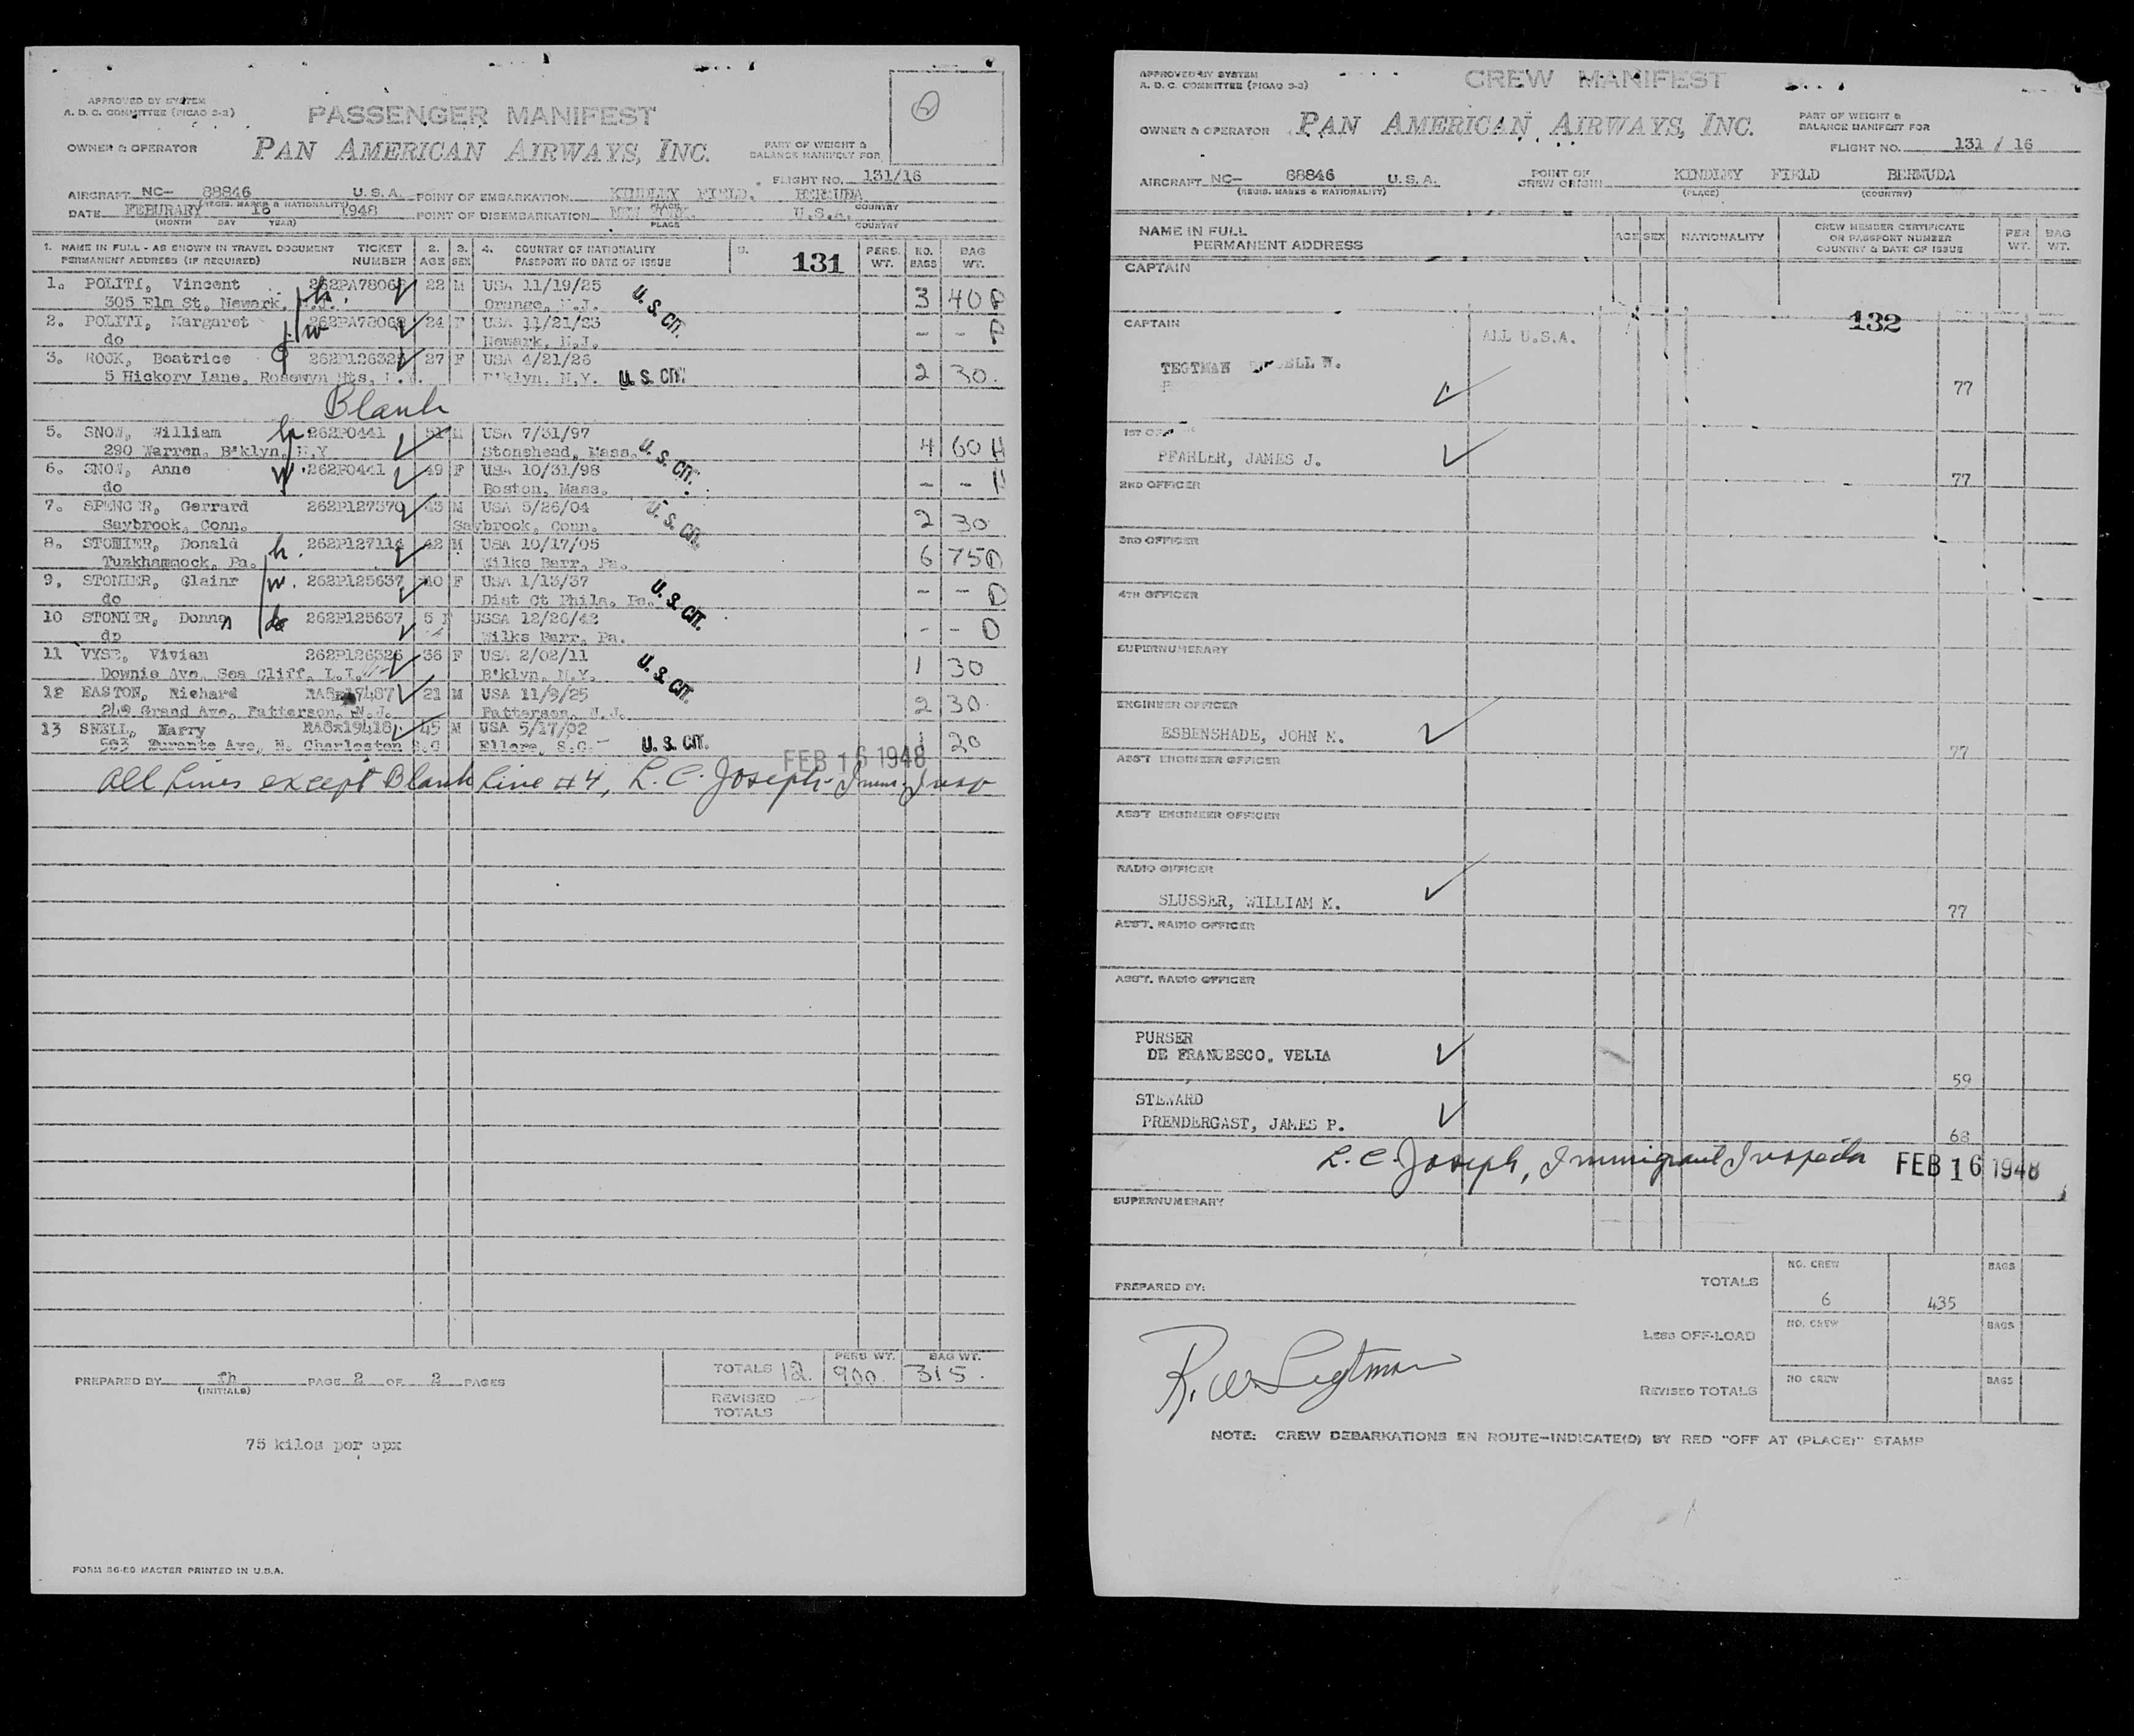 APPROVED BY SYSTEM
A. D. C. COMMITTEE (PICAO 2-2)
PASSENGER MANIFEST
OWNER & OPERATOR PAN AMERICAN AIRWAYS, INC.
PART OF WEIGHT &
BALANCE MANIFEST FOR
2
FLIGHT NO. 131/16
AIRCRAFT NC- 88846 U.S.A. POINT OF EMBARKATION KINDLEY FIELD, BERMUDA
(REGIS. MARKS & NATIONALITY) PLACE COUNTRY
DATE FEBURARY 16 1948 POINT OF DISEMBARKATION NEW YORK, U.S.A.
(MONTH DAY YEAR) PLACE COUNTRY
1. NAME IN FULL - AS SHOWN IN TRAVEL DOCUMENT TICKET 2. 3. 4. COUNTRY OF NATIONALITY 5. 131 PERS. NO. BAG
PERMANENT ADDRESS (IF REQUIRED) NUMBER AGE SEX PASSPORT NO DATE OF ISSUE WT. BAGS WT.
1. POLITI, Vincent h. 262PA78068 22 M USA 11/19/25
305 Elm St, Newark, Orange, N.J. U.S. CIT. 3 40 P
2. POLITI, Margaret w 262PA78068 24 F USA 11/21/23
do Newark, N.J. - - P
3. ROCK, Beatrice 262P126325 27 F USA 4/21/26
5 Hickory Lane, Rosewyn Hts, B'klyn, N.Y. U.S. CIT. 2 30.
Blank
5. SNOW, William h 262P0441 51 M USA 7/31/97
290 Warren, B'klyn, N.Y Stonehead, Mass. U.S. CIT. 4 60 H
6. SNOW, Anne w 262P0441 49 F USA 10/31/98
do Boston, Mass. - - H
7. SPENCER, Gerrard 262P127370 43 M USA 5/26/04
Saybrook, Conn. Saybrook, Conn. U.S. CIT. 2 30
8. STONIER, Donald h. 262P127114 42 M USA 10/17/05
Tunkhannock, Pa. Wilks Barr, Pa. 6 75 D
9. STONIER, Glainr w. 262P125637 40 F USA 1/13/37
do Dist Ct Phila, Pa. U.S. CIT. - - D
10 STONIER, Donna da 262P125637 5 F USSA 12/26/42
do Wilks Barr, Pa. - - D
11 VYSE, Vivian 262P126326 36 F USA 2/02/11
Downie Ave, Sea Cliff, L.I. B'klyn, N.Y. U.S. CIT. 1 30
12 EASTON, Richard RA8x17487 21 M USA 11/9/25
Grand Ave, Patterson, N.J. Patterson, N.J. 2 30.
13 SNELL, Harry RA8x19418 45 M USA 5/17/02
Durante Ave, N. Charleston S.C Ellore, S.C. U.S. CIT. 1 20
FEB 16 1948
All Lines except Blank Line #4, L. C. Joseph - Imm. Insp
PERS WT. BAG WT.
TOTALS 12. 900. 315.
PREPARED BY PAGE 2 OF 2 PAGES
(INITIALS)
REVISED
TOTALS
75 kilos per apx
FORM 36-80 MASTER PRINTED IN U.S.A.
APPROVED BY SYSTEM
A. D. C. COMMITTEE (PICAO 2-3)
CREW MANIFEST
OWNER & OPERATOR PAN AMERICAN AIRWAYS, INC.
PART OF WEIGHT &
BALANCE MANIFEST FOR
FLIGHT NO. 131 / 16
AIRCRAFT NC- 88846 U.S.A. POINT OF CREW ORIGIN KINDLEY FIELD BERMUDA
(REGIS. MARKS & NATIONALITY) (PLACE) (COUNTRY)
NAME IN FULL AGE SEX NATIONALITY CREW MEMBER CERTIFICATE PER BAG
PERMANENT ADDRESS OR PASSPORT NUMBER WT. WT.
COUNTRY & DATE OF ISSUE
CAPTAIN
132
CAPTAIN ALL U.S.A.
TEGTMAN ELL W.
77
1ST
PFAHLER, JAMES J.
77
2ND OFFICER
3RD OFFICER
4TH OFFICER
SUPERNUMERARY
ENGINEER OFFICER
ESBENSHADE, JOHN M.
77
ASS'T ENGINEER OFFICER
ASS'T ENGINEER OFFICER
RADIO OFFICER
SLUSSER, WILLIAM M.
77
ASS'T. RADIO OFFICER
ASS'T. RADIO OFFICER
PURSER
DE FRANCESCO, VELIA
59
STEWARD
PRENDERGAST, JAMES P.
68
L. C. Joseph, Immigrant Inspector FEB 16 1948
SUPERNUMERARY
PREPARED BY:
NO. CREW BAGS
TOTALS 6 435
NO. CREW BAGS
LESS OFF-LOAD
R. W. Tegtman
NO CREW BAGS
REVISED TOTALS
NOTE: CREW DEBARKATIONS EN ROUTE-INDICATE(D) BY RED "OFF AT (PLACE)" STAMP